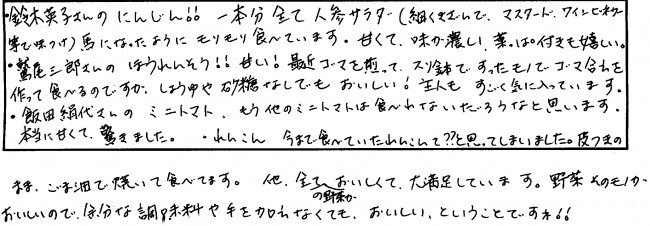 ・鈴木菜子さんの にんじん!! 一本分 全て 人参サラダ (細くきざんで、マスタード、ワインビネガー
等で味つけ) 馬になったように モリモリ 食べています。甘くて、味が濃い、葉っぱ付きも嬉しい。
・鷲尾三郎さんの ほうれんそう!! 甘い! 最近 ゴマを煎って、スリ鉢ですったモノでゴマ合わを
作って食べるのですが、しょうゆや 砂糖なしでも おいしい! 主人も すごく気に入っています。
・飯田絹代さんの ミニトマト、もう他のミニトマトは食べれないだろうなと思います。
本当に甘くて、驚きました。 ・れんこん 今まで食べていたれんこんて??と思ってしまいました。皮つきの
まま、ごま油で焼いて食べてます。 他、全ての野菜がおいしくて、大満足しています。野菜そのモノが
おいしいので、余分な調味料や手を加えなくても、おいしい、ということですネ!!